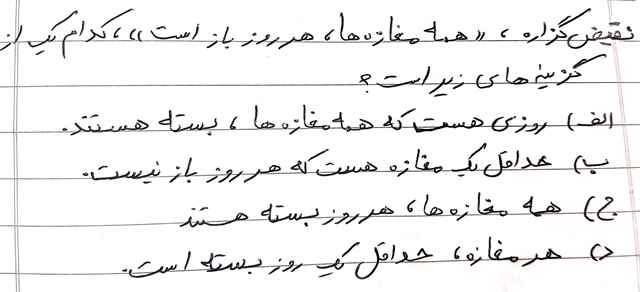 نقیض گزاره ، «همه مغازه ها، هر روز باز است»، کدام یک از
گزینه های زیر است؟
الف) روزی هست که همه مغازه ها، بسته هستند.
ب) حداقل یک مغازه هست که هر روز باز نیست.
ج) همه مغازه ها، هر روز بسته هستند
د) هر مغازه، حداقل یک روز بسته است.